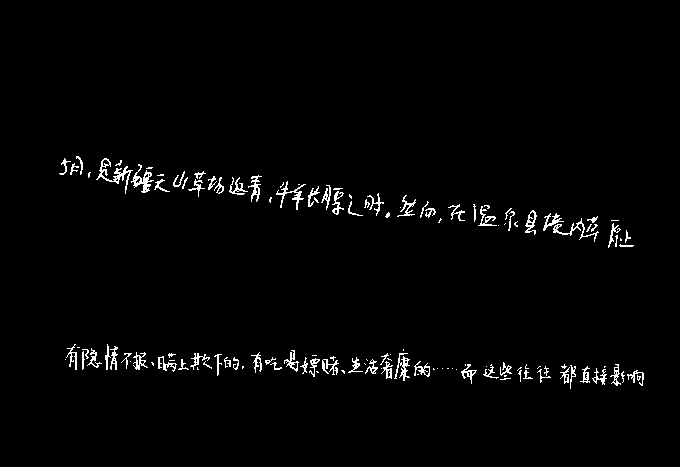 5月,是新疆天山草场返青,牛羊长膘之时。然而,在温泉县境内草原上
有隐情不报、瞒上欺下的,有吃喝嫖赌、生活奢靡的……而这些往往都直接影响